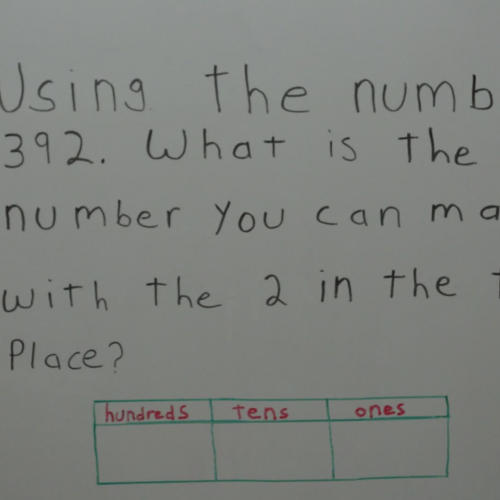 Using the numb
392. What is the
number you can ma
with the 2 in the t
Place?
hundreds tens ones